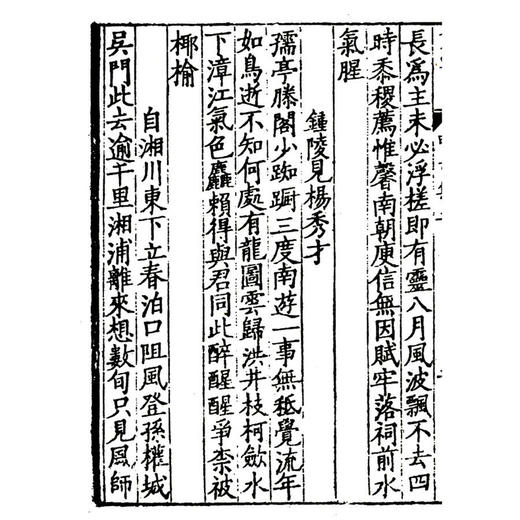 長爲主未必浮搓即有靈八月風波飄不去四
時黍稷薦惟馨南朝庾信無因賦牢落祠前水
氣腥
鍾陵見楊秀才
孺亭滕閣少踟蹰三度南遊一事無秪覺流年
如鳥逝不知何處有龍圖雲歸洪井枝柯斂水
下漳江氣色麤賴得與君同此醉醒醒爭柰被
椰榆
自湘川東下立春泊口阻風登孫權城
吳門此去逾千里湘浦離來想數旬只見風師